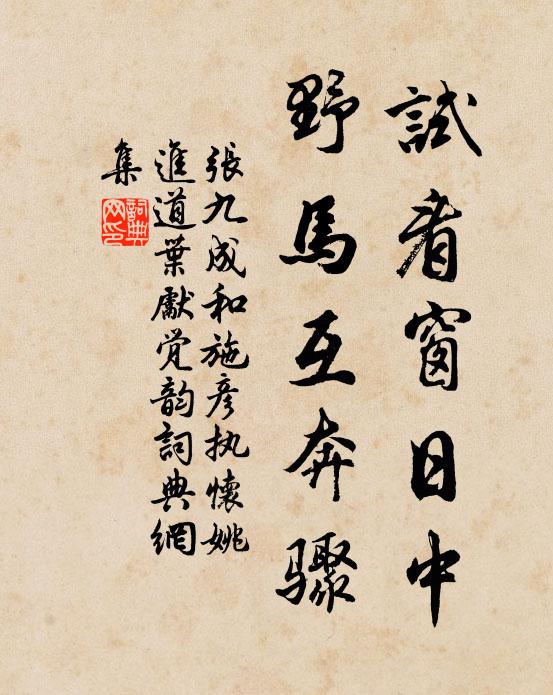 試看窗日中
野馬互奔驟
張九成和施彥执懷姚
進道葉獻觉韵詞典網
集
詞典
网印